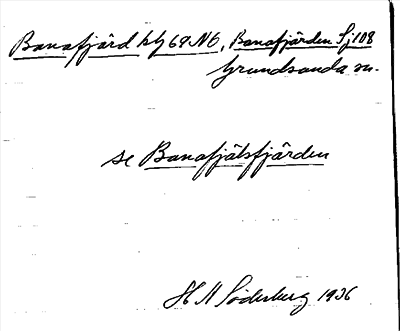 Banafjärd hbg 69 NO, Banafjärden Sj 108
Grundsunda sn.
se Banafjälsfjärden
H N Söderberg 1936